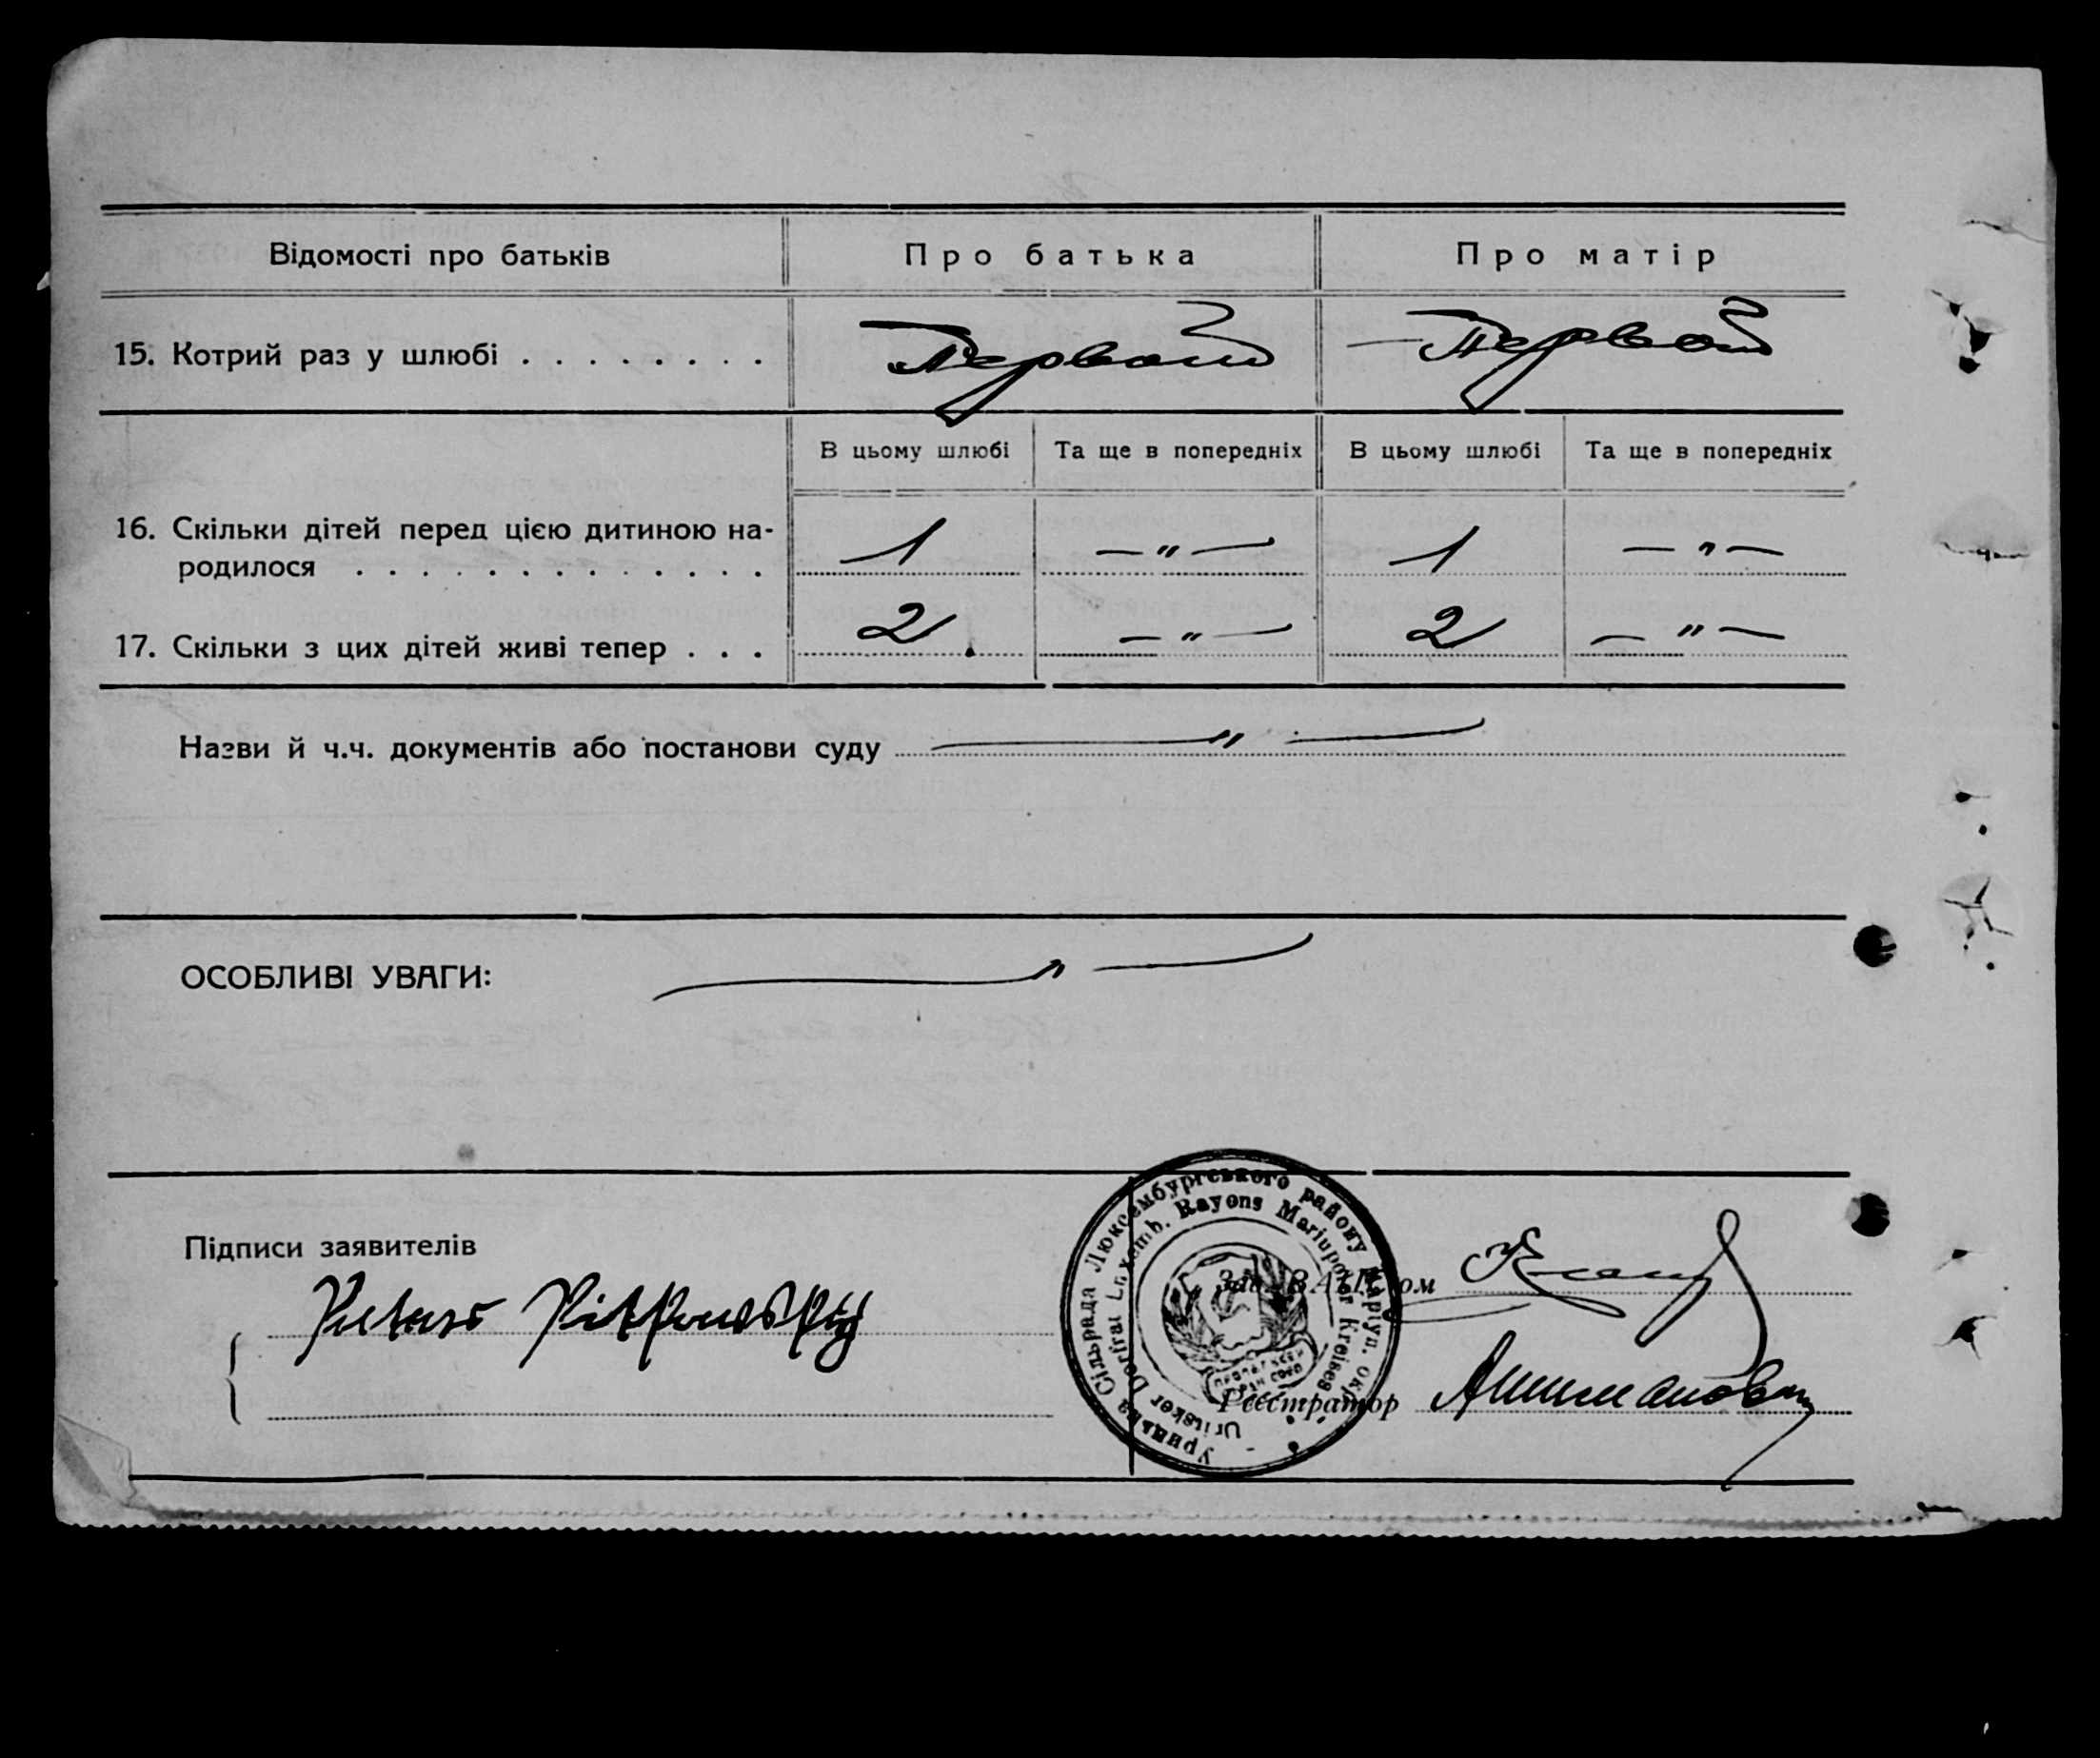 Відомості про батьків
Про батька
Про матір
15. Котрий раз у шлюбі . . . . . . . .
Первой
Первой
В цьому шлюбі
Та ще в попередніх
В цьому шлюбі
Та ще в попередніх
16. Скільки дітей перед цією дитиною на-
родилося . . . . . . . . . . . . .
1
— „ —
1
— „ —
17. Скільки з цих дітей живі тепер . . .
2
— „ —
2
— „ —
Назви й ч.ч. документів або постанови суду
— „ —
ОСОБЛИВІ УВАГИ:
— „ —
Підписи заявителів
Зав. ЗАГС'ом
Реєстратор
Сільрада Люксембургського району Маріуп. окр.
Uritsker Dorfrat Luxemb. Rayons Mariupoler Kreises